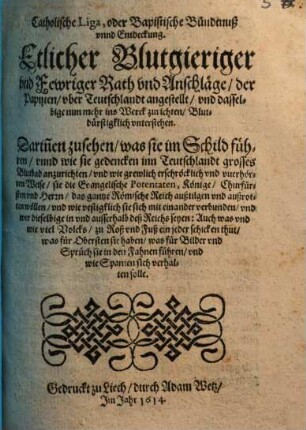 Catholische Liga, oder Bapistische Bündtnuß
vnnd Entdeckung.
Etlicher Blutgieriger
vnd Fewriger Rath vnd Anschläge/ der
Papisten/ vber Teutschlandt angestellt/ vnd dassel-
bige nun mehr ins Werck zurichten/ Blut-
dürstigklich vnterstehen.
Dariñen zusehen/ was sie im Schild füh-
ren/ vnnd wie sie gedencken inn Teutschlandt grosses
Blutbad anzurichten/ vnd wie grewlich erschröcklich vnd vnerhör-
ten Weise/ sie die Euangelische Potentaten, Könige/ Churfür-
sten vnd Herrn/ das gantze Römische Reich außtilgen vnd außrot-
ten wöllen/ vnnd wie vestigklich sie sich mit einander verbunden/ vnd
wer dieselbige in vnd ausserhalb deß Reichs seyen: Auch was vnd
wie viel Volcks/ zu Roß vnd Fuß ein jeder schicken thut/
was für Obersten sie haben/ was für Bilder vnd
Sprüch sie in den Fahnen führen/ vnd
wie Spanien sich verhal-
ten solle.
Gedruckt zu Liech/ durch Adam Wetz/
Im Jahr 1614.